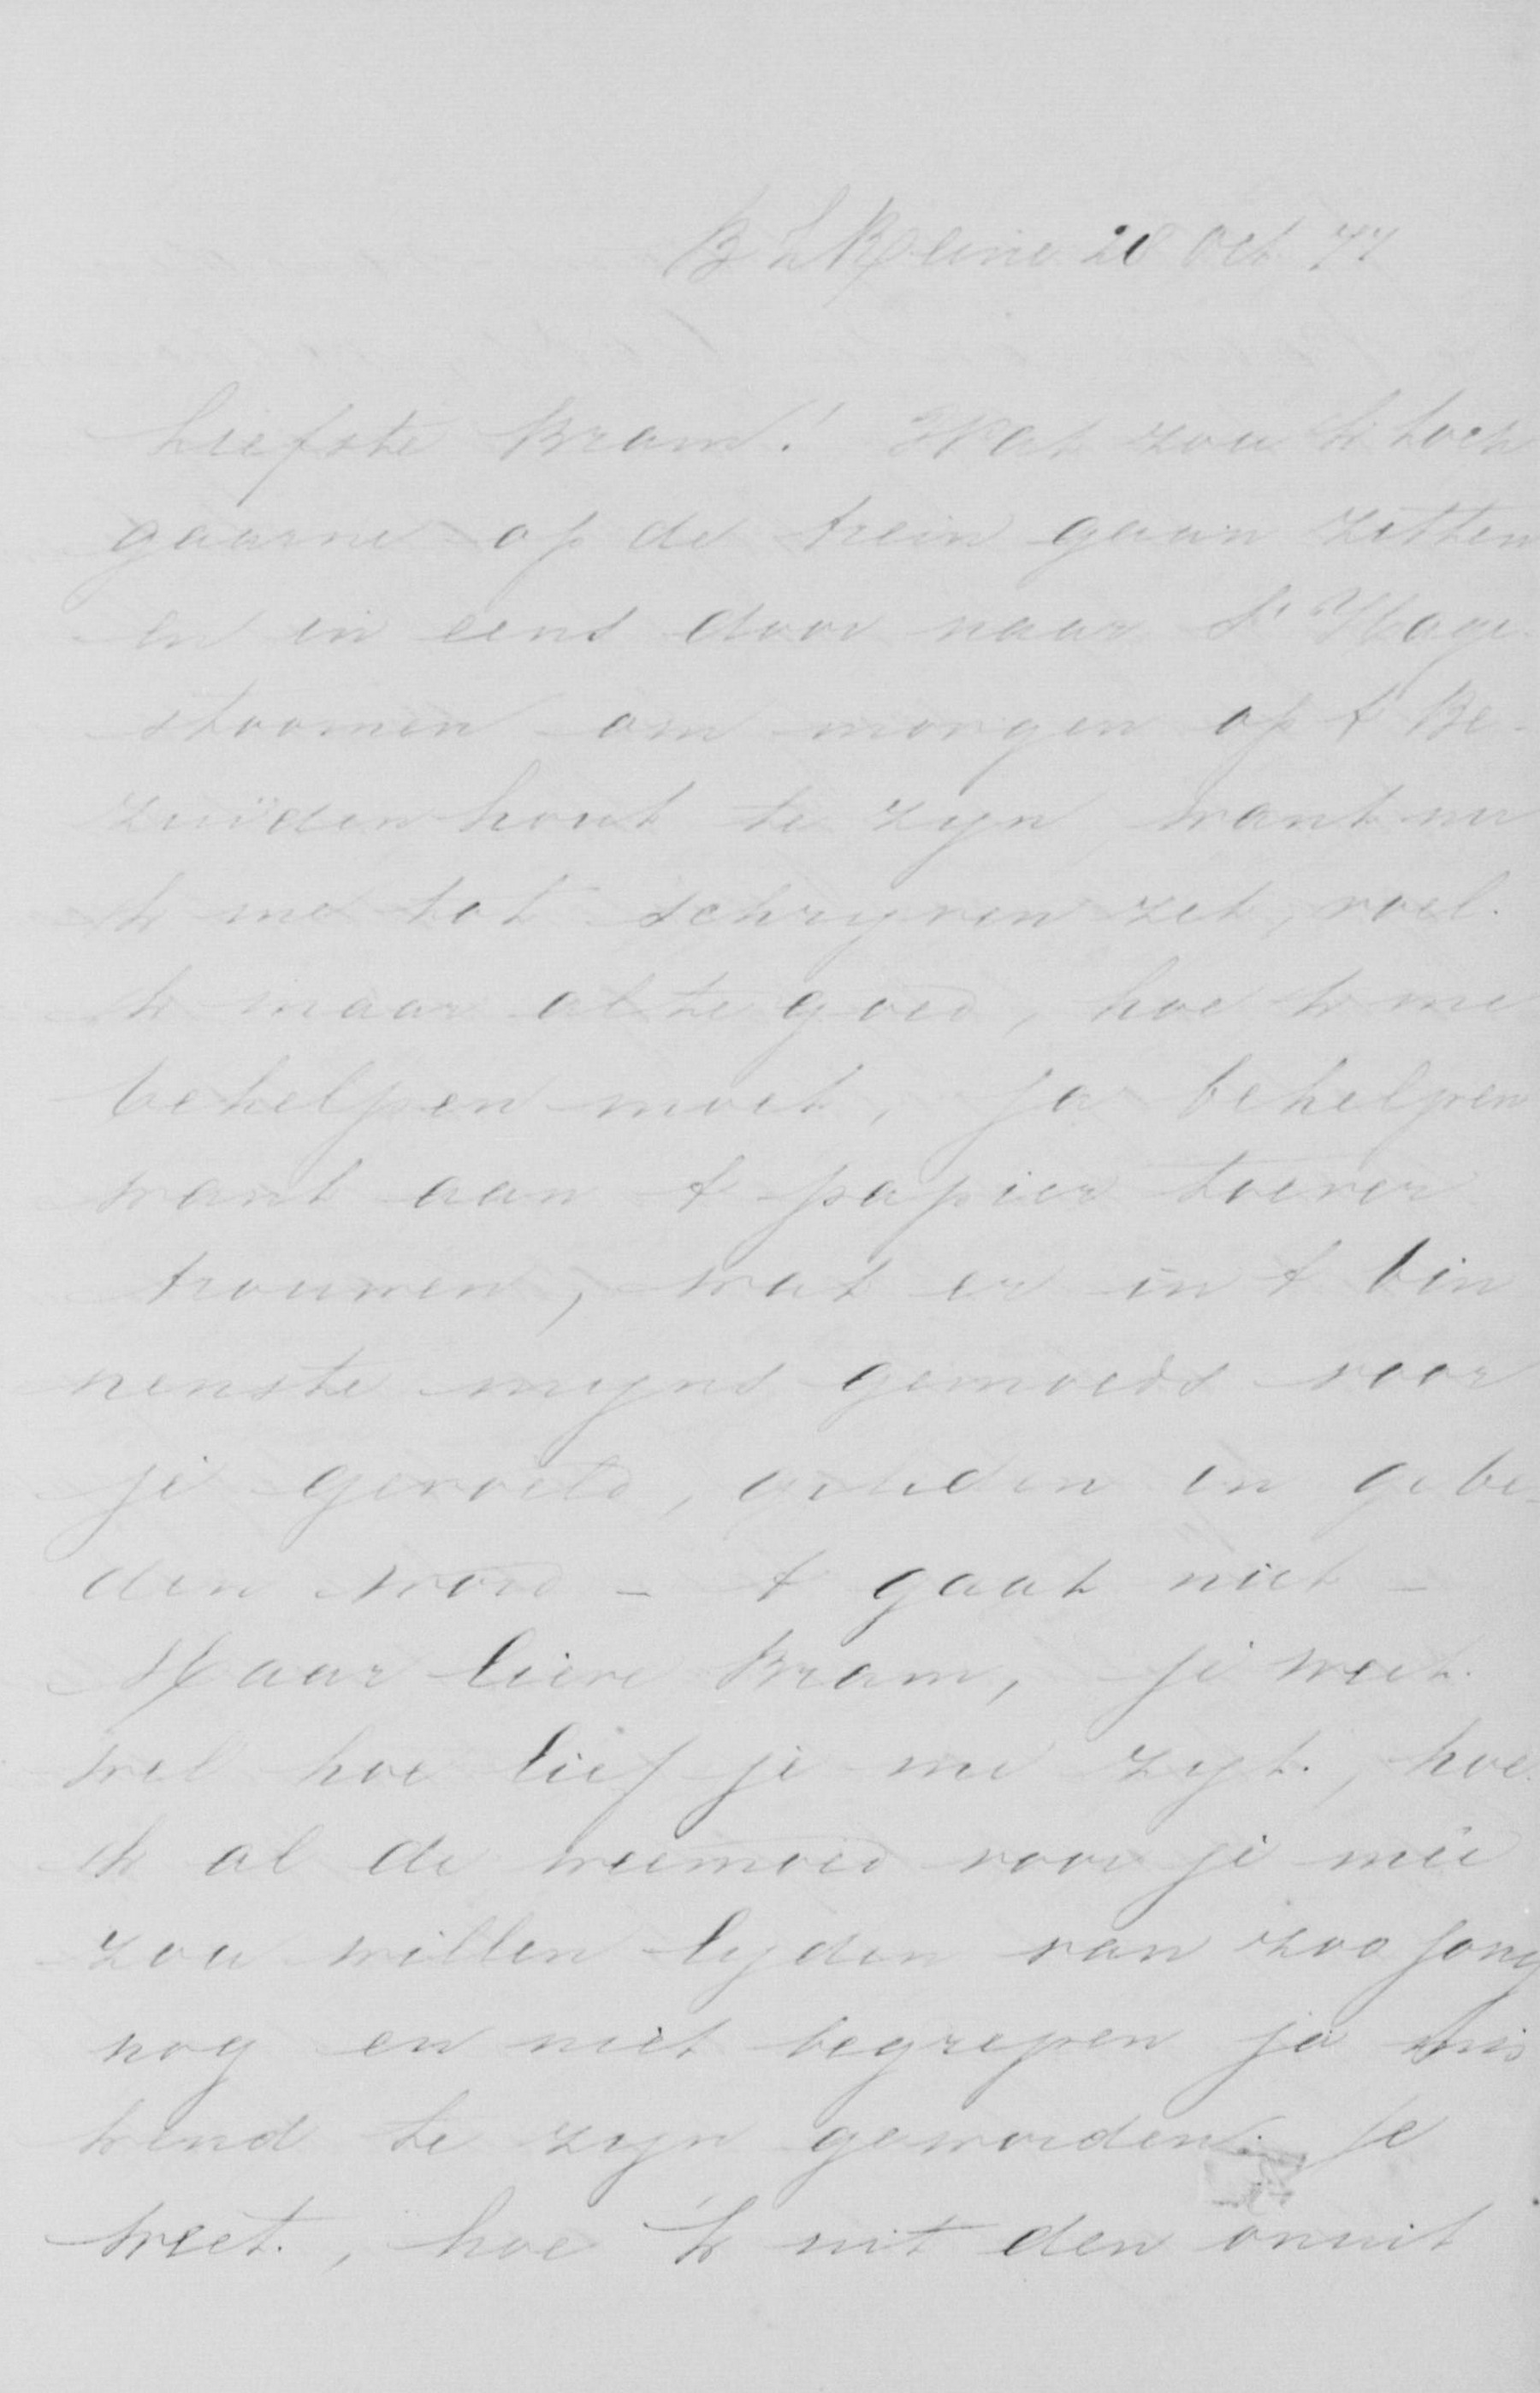 B L Reine 28 Oct 77
Liefste Bram! Wat zou 'k toch
gaarne op de trein gaan zitten
en in eens door naar s' Hage
stoomen om morgen op 't Be-
zuidenhout te zyn, want nu
'k me tot schryven zet, voel
'k maar al te goed, hoe 'k me
behelpen moet, ja behelpen
want aan 't papier toever
trouwen, wat er in 't bin
nenste myns gemoeds voor
je gevoeld, geleden en gebe-
den word - 't gaat niet -
Maar lieve Bram, je weet
wel hoe lief je me zyt, hoe
ik al de weemoed voor je meê
zou willen lyden van zoo jong
nog en niet begrepen ja mis
kend te zyn geworden. Je
weet, hoe 'k uit den onuit